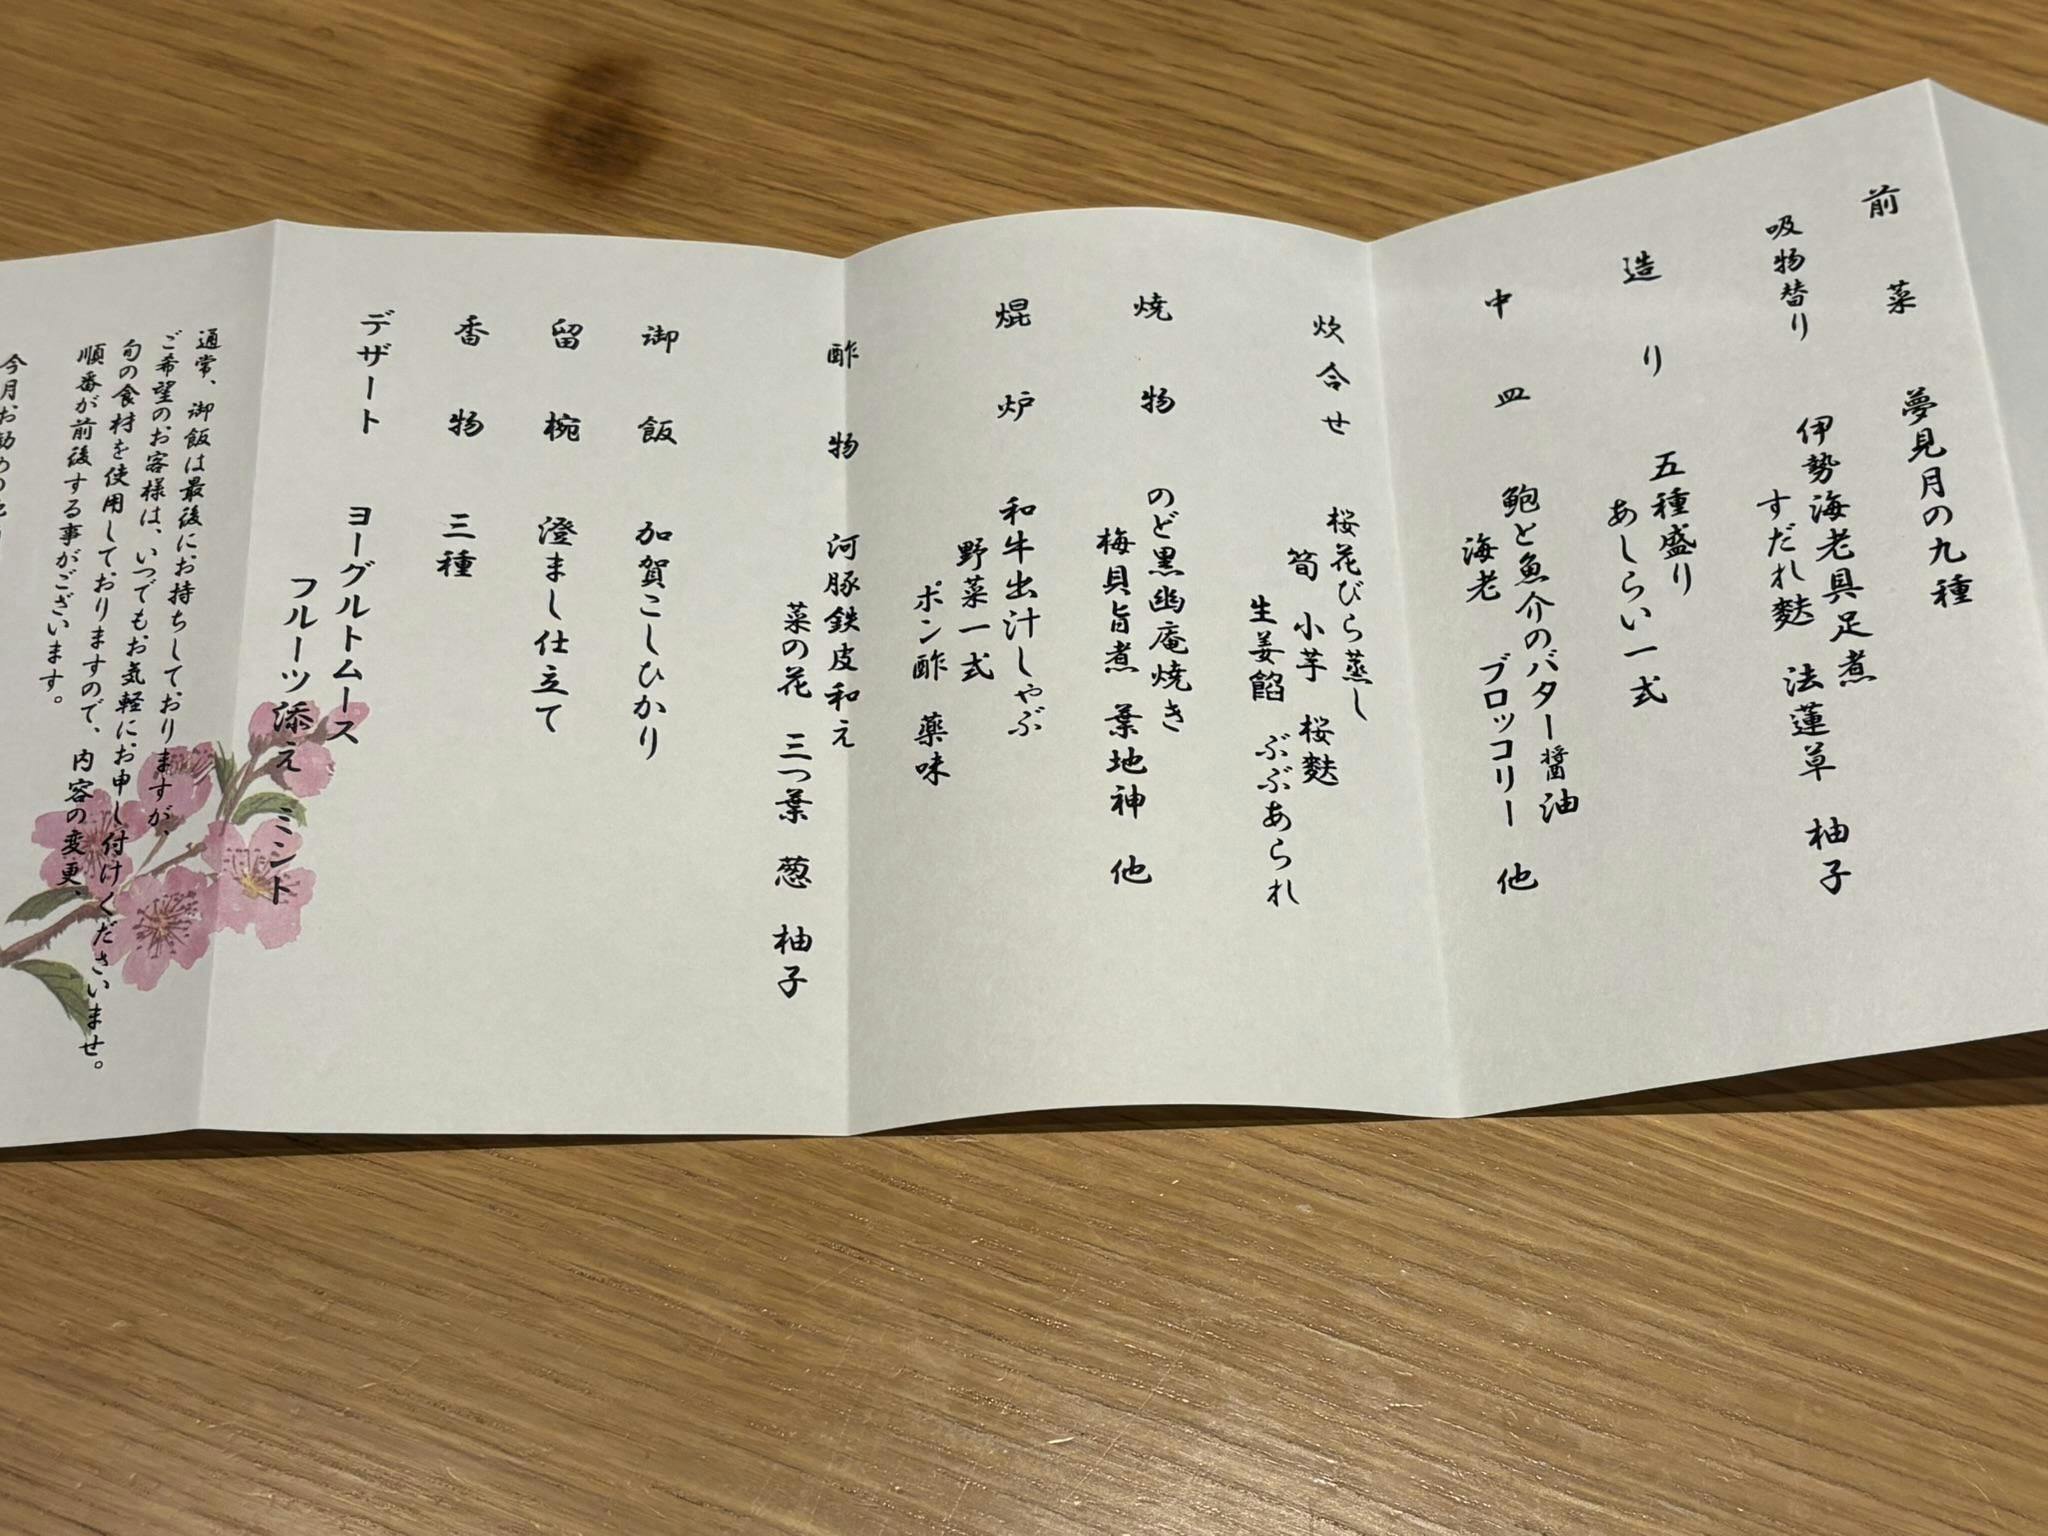 前菜　夢見月の九種
吸物替り　伊勢海老具足煮
すだれ麩　法蓮草　柚子
造り　五種盛り
あしらい一式
中皿　鮑と魚介のバター醤油
海老　ブロッコリー　他
炊合せ　桜花びら蒸し
筍　小芋　桜麩
生姜餡　ぶぶあられ
焼物　のど黒幽庵焼き
梅貝旨煮　葉地神　他
焜炉　和牛出汁しゃぶ
野菜一式
ポン酢　薬味
酢物　河豚鉄皮和え
菜の花　三つ葉　葱　柚子
御飯　加賀こしひかり
留椀　澄まし仕立て
香物　三種
デザート　ヨーグルトムース
フルーツ添え　ミント
通常、御飯は最後にお持ちしておりますが、
ご希望のお客様は、いつでもお気軽にお申し付けくださいませ。
旬の食材を使用しておりますので、内容の変更、
順番が前後する事がございます。
今月お勧めの